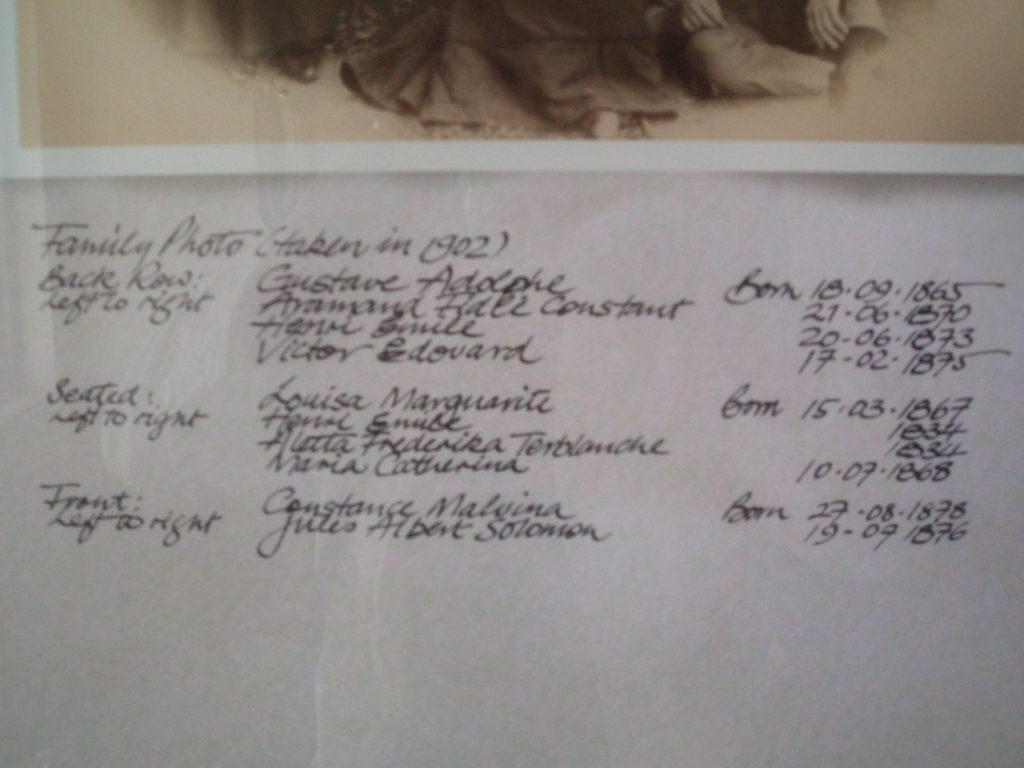 Family Photo (taken in 1902)
Back Row: Gustave Adolphe Born 18.09.1865
Left to right Aramand Constant 21-06-1870
Henri Emile 20-06-1873
Victor Edouard 17-02-1875
Seated: Louisa Marguarite Born 15.03.1867
Left to right Henri Emile 1834
Aletta Frederika Terblanche 1834
Maria Catherina 10.07.1868
Front: Constance Malvina Born 27-08-1878
Left to right Jules Albert Solomon 19-07 1876